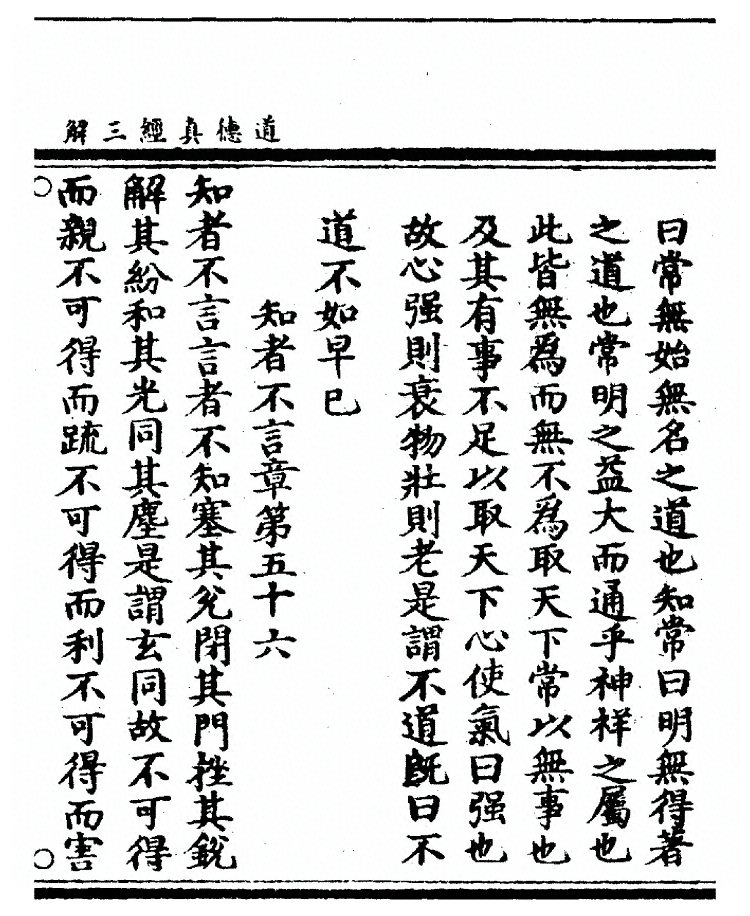 道德真經三解
曰常無始無名之道也知常曰明無得著
之道也常明之益大而通乎神祥之屬也
此皆無爲而無不爲取天下常以無事也
及其有事不足以取天下心使氣曰强也
故心强則衰物壯則老是謂不道既曰不
道不如早巳
知者不言章第五十六
知者不言言者不知塞其兌閉其門挫其銳
解其紛和其光同其塵是謂玄同故不可得
而親不可得而疏不可得而利不可得而害